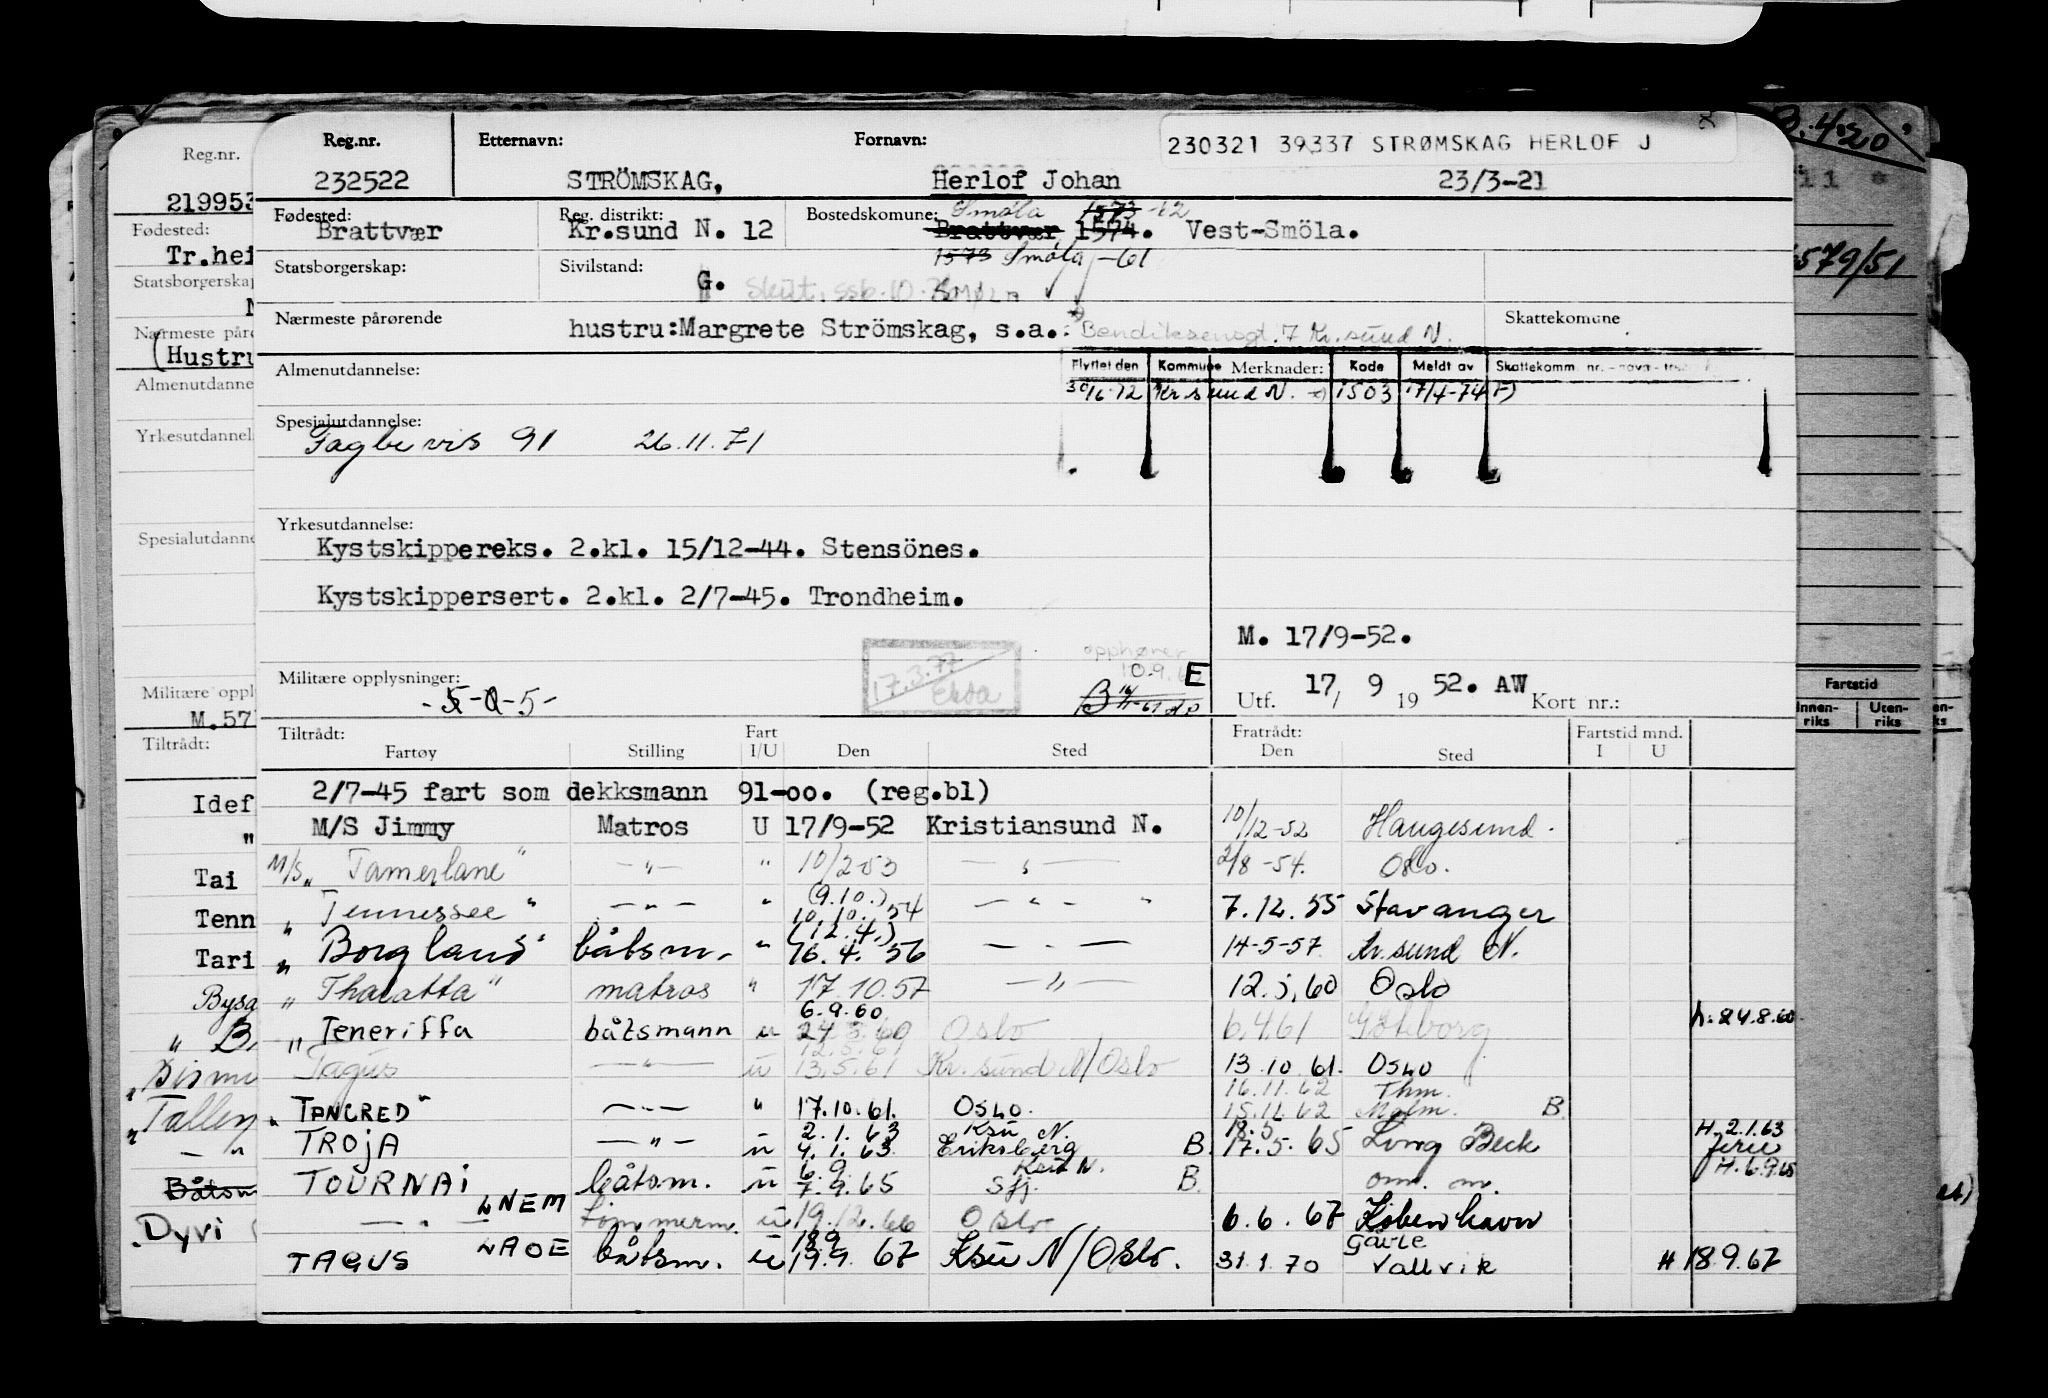 Reg.nr. Etternavn: Fornavn: 230321 39337 STRØMSKAG HERLOF J
232522 STRÖMSKAG, Herlof Johan 23/3-21
Fødested: Reg. distrikt: Bostedskommune: Smöla 1573 -62
Brattvær Kr.sund N. 12 Brattvær 1574. Vest-Smöla.
Statsborgerskap: Sivilstand: 1573 Smöla -61
G.
Nærmeste pårørende hustru: Margrete Strömskag, s.a. Bendiksensgt. 7 Kr.sund N. Skattekomune
Almenutdannelse: Flyttet den Kommune Merknader: Kode Meldt av Skattekomm. nr.
30/6-72 Kr sund N. 1503 17/4-74
Spesialutdannelse:
Fagbevis 91 26.11.71
Yrkesutdannelse:
Kystskippereks. 2.kl. 15/12-44. Stensönes.
Kystskippersert. 2.kl. 2/7-45. Trondheim.
M. 17/9-52.
opphører
17.3.77
Militære opplysninger: E
-5-0-5- Utf. 17/ 9 19 52. AW Kort nr.:
Tiltrådt: Fart Fratrådt: Fartstid mnd.
Fartøy Stilling I/U Den Sted Den Sted I U
2/7-45 fart som dekksmann 91-oo. (reg.bl)
M/S Jimmy Matros U 17/9-52 Kristiansund N. 10/12-52 Haugesund.
M/S „ Tamerlane" -"- " 10/2-53 - " - 2/8-54. Oslo.
(9.10.)
„ Tennessee" -"- " 10.10.54 - " - " 7.12.55 Stavanger
(12.4.)
„ Borgland" båtsm. " 16.4.56 - " - 14-5-57 Kr.sund N.
„ Thalatta" matros " 17.10.57 - " - 12.5.60 Oslo
6.9.60 h. 24.8.60.
„ Teneriffa båtsmann u 24.8.60 Oslo 6.4.61 Göteborg
12.5.61
Tagus -"- u 13.5.61 Kr.sund N/Oslo 13.10.61. Oslo
16.11.62 Thm.
„ TANCRED" -"- " 17.10.61. OSLO. 15.11.62 Malm. B.
2.1.63 Ksu N. 18.5 H 2.1.63
TROJA -"- u 4.1.63 Eriksberg B. 17.5.65 Long Beck ferie
6.9. Ksu N. H. 6.9.65
TOURNAI båtsm. u 7.9.65 Sfj. B. om. m.
-"- LNEM tømmerm. u 19.12.66 Oslo 6.6.67 København
18.9 Gävle
TAGUS LAOE båtsm. u 19.9.67 Ksu N/Oslo. 31.1.70 Vallvik H 18.9.67
Reg.nr.
219953
Fødested:
Tr.hei
Statsborgerskap
N
Nærmeste påre
(Hustru
Almenutdanne
Yrkesutdannel
Spesialutdanne
Militære oppl
M.57
Tiltrådt:
Idef
"
Tai
Tenn
Tari
Bysa
" B.
Tallen
- " -
Båtsm
Dyvi
3.4.20
11 *
579/51
Fartstid
Innen-riks Uten-riks